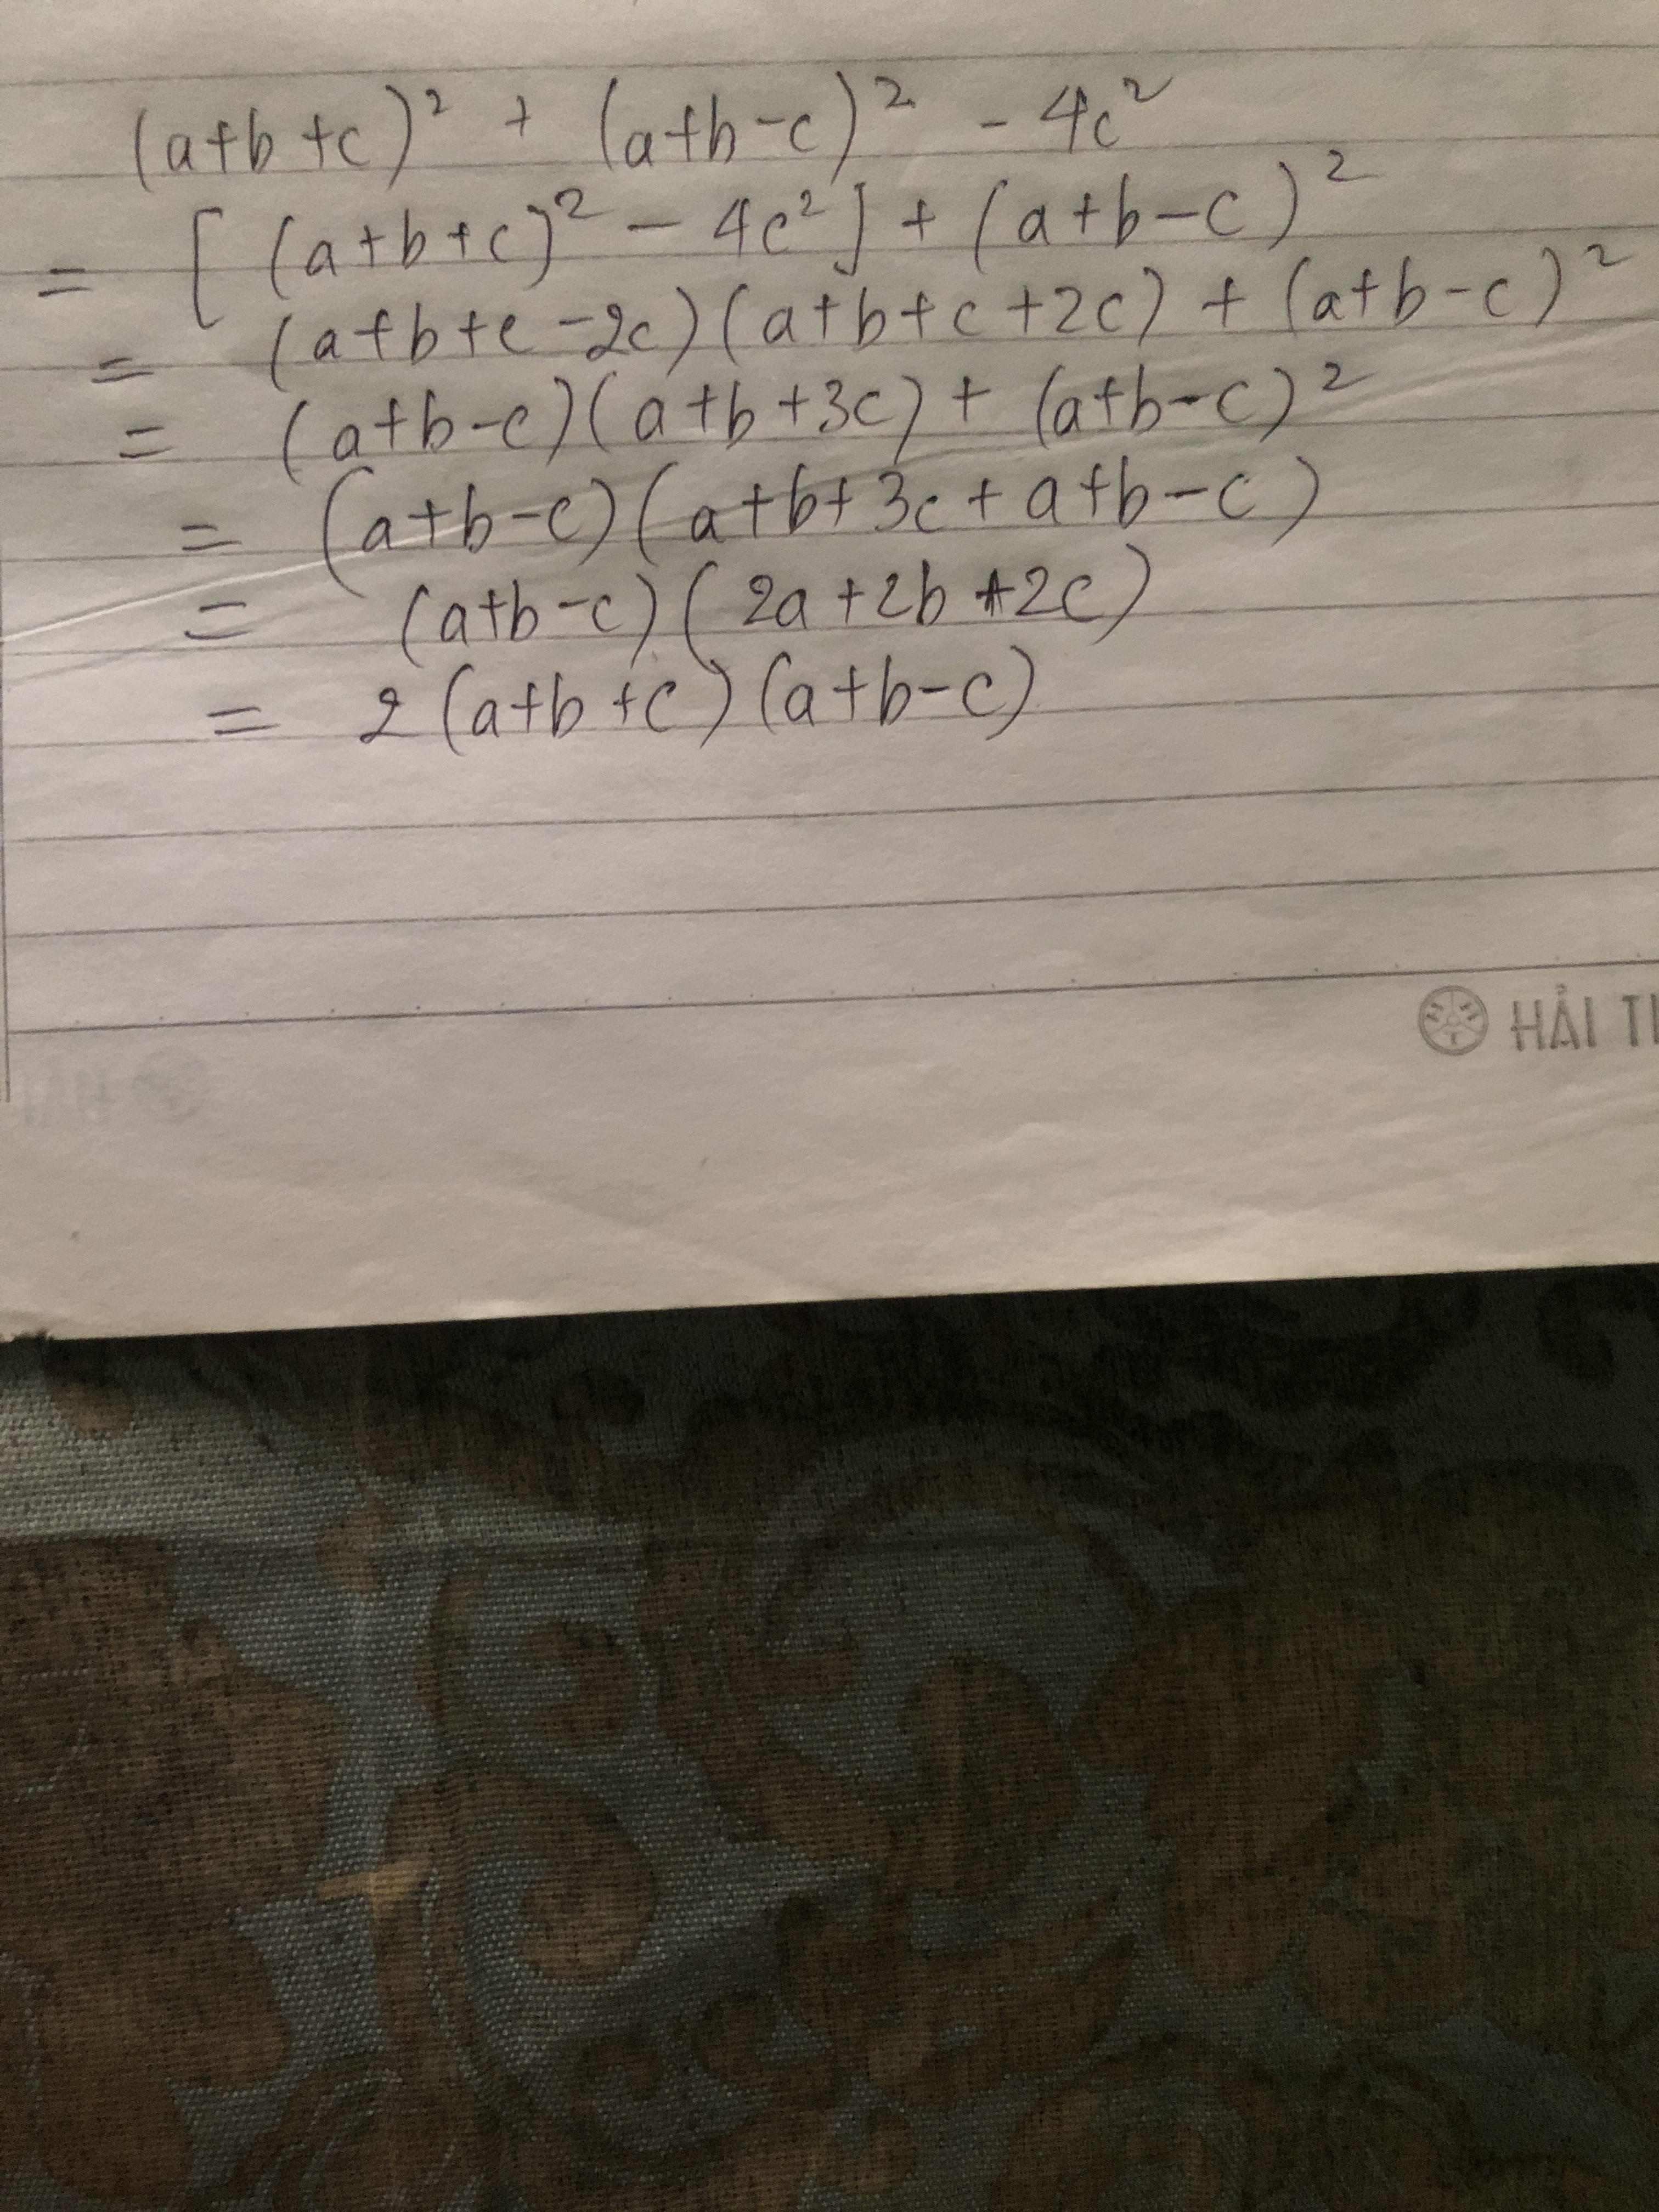 (a+b+c)² + (a+b-c)² - 4c²
= [(a+b+c)² - 4c²] + (a+b-c)²
= (a+b+c-2c)(a+b+c+2c) + (a+b-c)²
= (a+b-c)(a+b+3c) + (a+b-c)²
= (a+b-c)(a+b+3c+a+b-c)
= (a+b-c)(2a+2b+2c)
= 2(a+b+c)(a+b-c)
HẢI